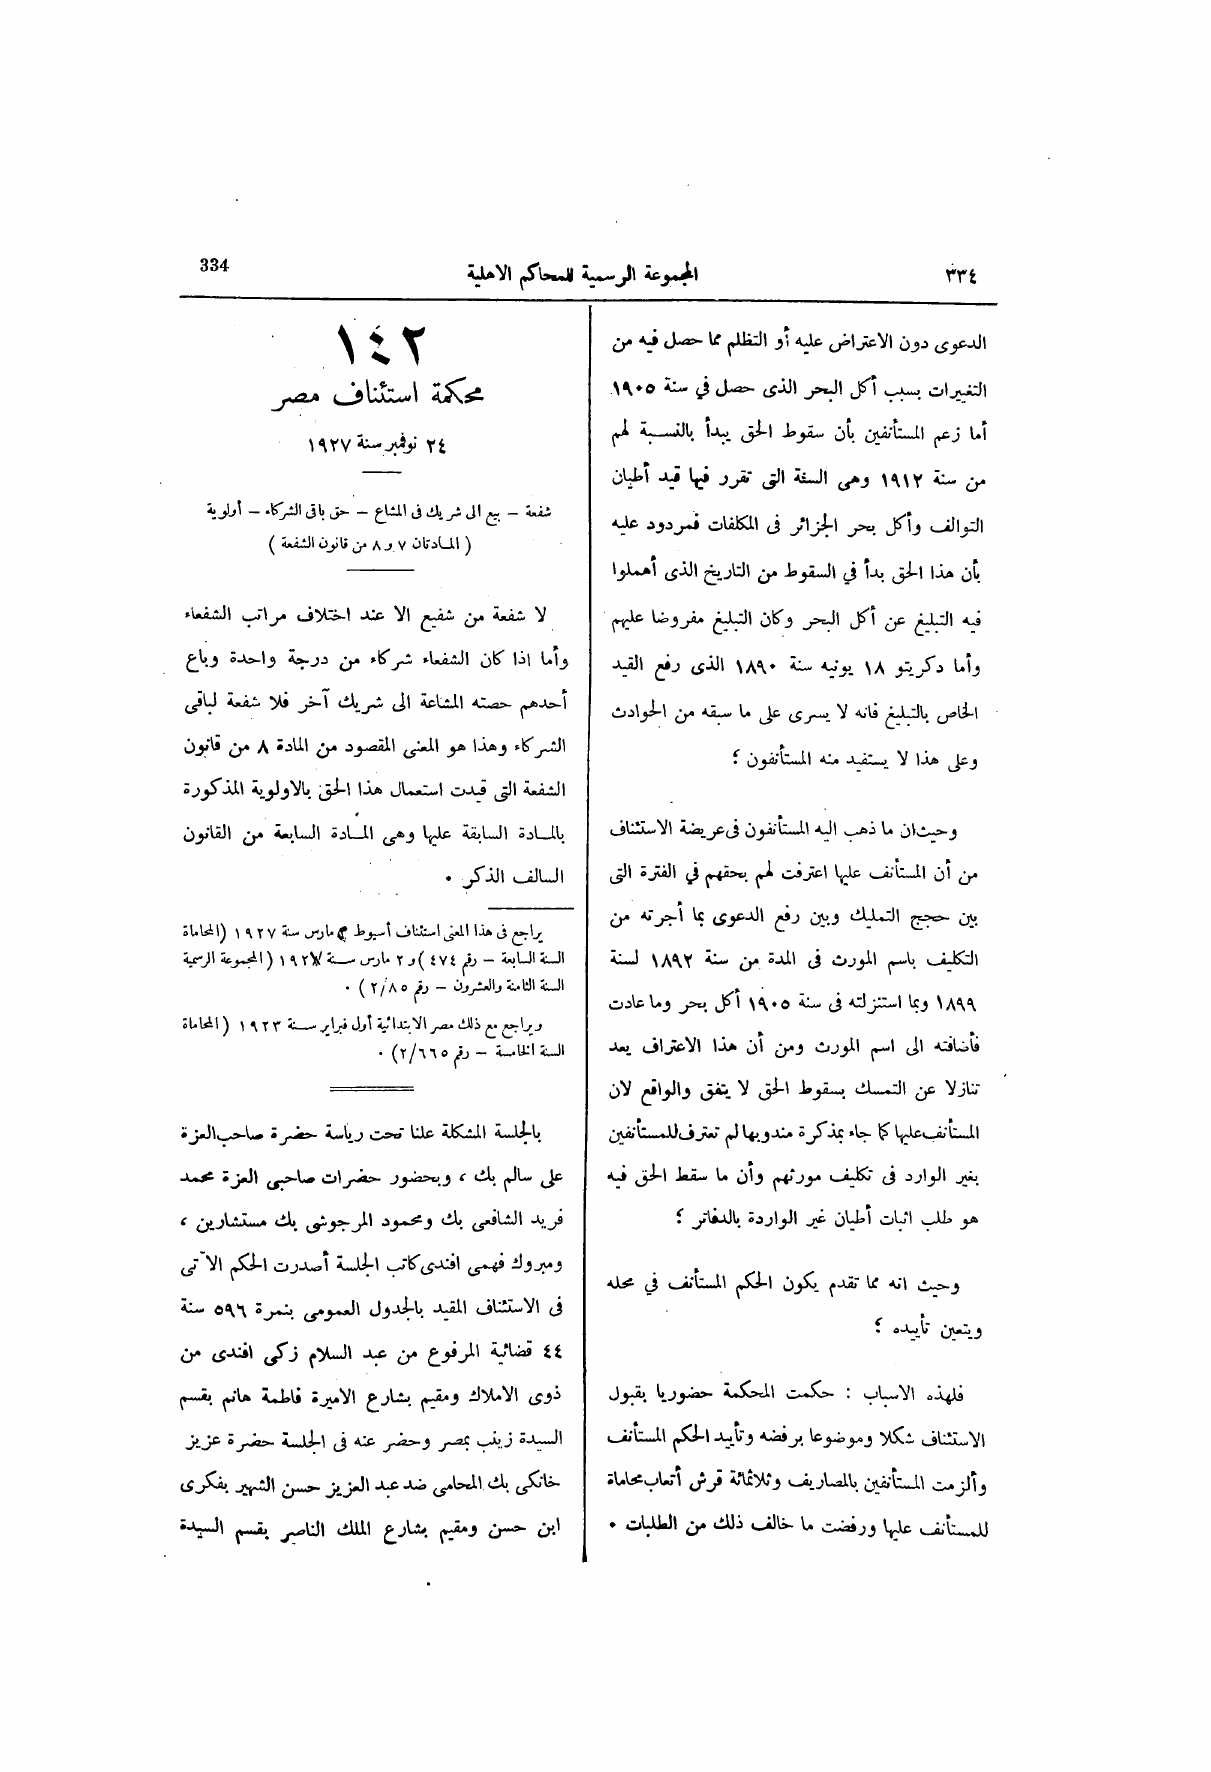 ٣٣٤
المجموعة الرسمية للمحاكم الاهلية
334
الدعوى دون الاعتراض عليه أو التظلم مما حصل فيه من
التغيرات بسبب أكل البحر الذى حصل في سنة ١٩٠٥
أما زعم المستأنفين بأن سقوط الحق يبدأ بالنسبة لهم
من سنة ١٩١٢ وهى السنة التى تقرر فيها قيد أطيان
التوالف وأكل بحر الجزائر فى المكلفات فمردود عليه
بأن هذا الحق بدأ في السقوط من التاريخ الذى أهملوا
فيه التبليغ عن أكل البحر وكان التبليغ مفروضا عليهم
وأما دكريتو ١٨ يونيه سنة ١٨٩٠ الذى رفع القيد
الخاص بالتبليغ فانه لا يسرى على ما سبقه من الحوادث
وعلى هذا لا يستفيد منه المستأنفون ؛
وحيث ان ما ذهب اليه المستأنفون فى عريضة الاستئناف
من أن المستأنف عليها اعترفت لهم بحقهم في الفترة التى
بين حجج التمليك وبين رفع الدعوى بما أجرته من
التكليف باسم المورث فى المدة من سنة ١٨٩٢ لسنة
١٨٩٩ وبما استنزلته فى سنة ١٩٠٥ أكل بحر وما عادت
فأضافته الى اسم المورث ومن أن هذا الاعتراف يعد
تنازلا عن التمسك بسقوط الحق لا يتفق والواقع لان
المستأنف عليها كما جاء بمذكرة مندوبها لم تعترف للمستأنفين
بغير الوارد فى تكليف مورثهم وأن ما سقط الحق فيه
هو طلب اثبات أطيان غير الواردة بالدفاتر ؛
وحيث انه مما تقدم يكون الحكم المستأنف في محله
ويتعين تأييده ؛
فلهذه الاسباب : حكمت المحكمة حضوريا بقبول
الاستئناف شكلا وموضوعا برفضه وتأييد الحكم المستأنف
وألزمت المستأنفين بالمصاريف وثلاثمائة قرش أتعاب محاماة
للمستأنف عليها ورفضت ما خالف ذلك من الطلبات .
١٤٢
محكمة استئناف مصر
٢٤ نوفمبر سنة ١٩٢٧
شفعة – بيع الى شريك فى المشاع – حق باقى الشركاء – أولوية
( المادتان ٧ و ٨ من قانون الشفعة )
لا شفعة من شفيع الا عند اختلاف مراتب الشفعاء
وأما اذا كان الشفعاء شركاء من درجة واحدة وباع
أحدهم حصته المشاعة الى شريك آخر فلا شفعة لباقى
الشركاء وهذا هو المعنى المقصود من المادة ٨ من قانون
الشفعة التى قيدت استعمال هذا الحق بالاولوية المذكورة
بالمادة السابقة عليها وهى المادة السابعة من القانون
السالف الذكر .
يراجع فى هذا المعنى استئناف أسيوط مارس سنة ١٩٢٧ (المحاماة
السنة السابعة – رقم ٤٧٤ ) و ٢ مارس سنة ١٩٢٧ (المجموعة الرسمية
السنة الثامنة والعشرون – رقم ٢/٨٥ ) .
ويراجع مع ذلك مصر الابتدائية أول فبراير سنة ١٩٢٣ (المحاماة
السنة الخامسة – رقم ٢/٦٦٥) .
بالجلسة المشكلة علنا تحت رياسة حضرة صاحب العزة
على سالم بك ، وبحضور حضرات صاحبى العزة محمد
فريد الشافعى بك ومحمود المرجوشى بك مستشارين ،
ومبروك فهمى افندى كاتب الجلسة أصدرت الحكم الآتى
فى الاستئناف المقيد بالجدول العمومى بنمرة ٥٩٦ سنة
٤٤ قضائية المرفوع من عبد السلام زكى افندى من
ذوى الاملاك ومقيم بشارع الاميرة فاطمة هانم بقسم
السيدة زينب بمصر وحضر عنه فى الجلسة حضرة عزيز
خانكى بك المحامى ضد عبد العزيز حسن الشهير بفكرى
ابن حسن ومقيم بشارع الملك الناصر بقسم السيدة